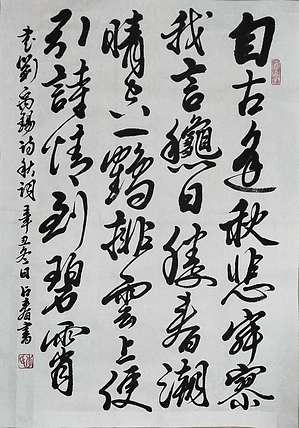 自古逢秋悲寂寥
我言龝日勝春潮
晴空一鶴排雲上便
引詩情到碧霄
書劉禹錫詩秋詞 辛丑冬日占春書